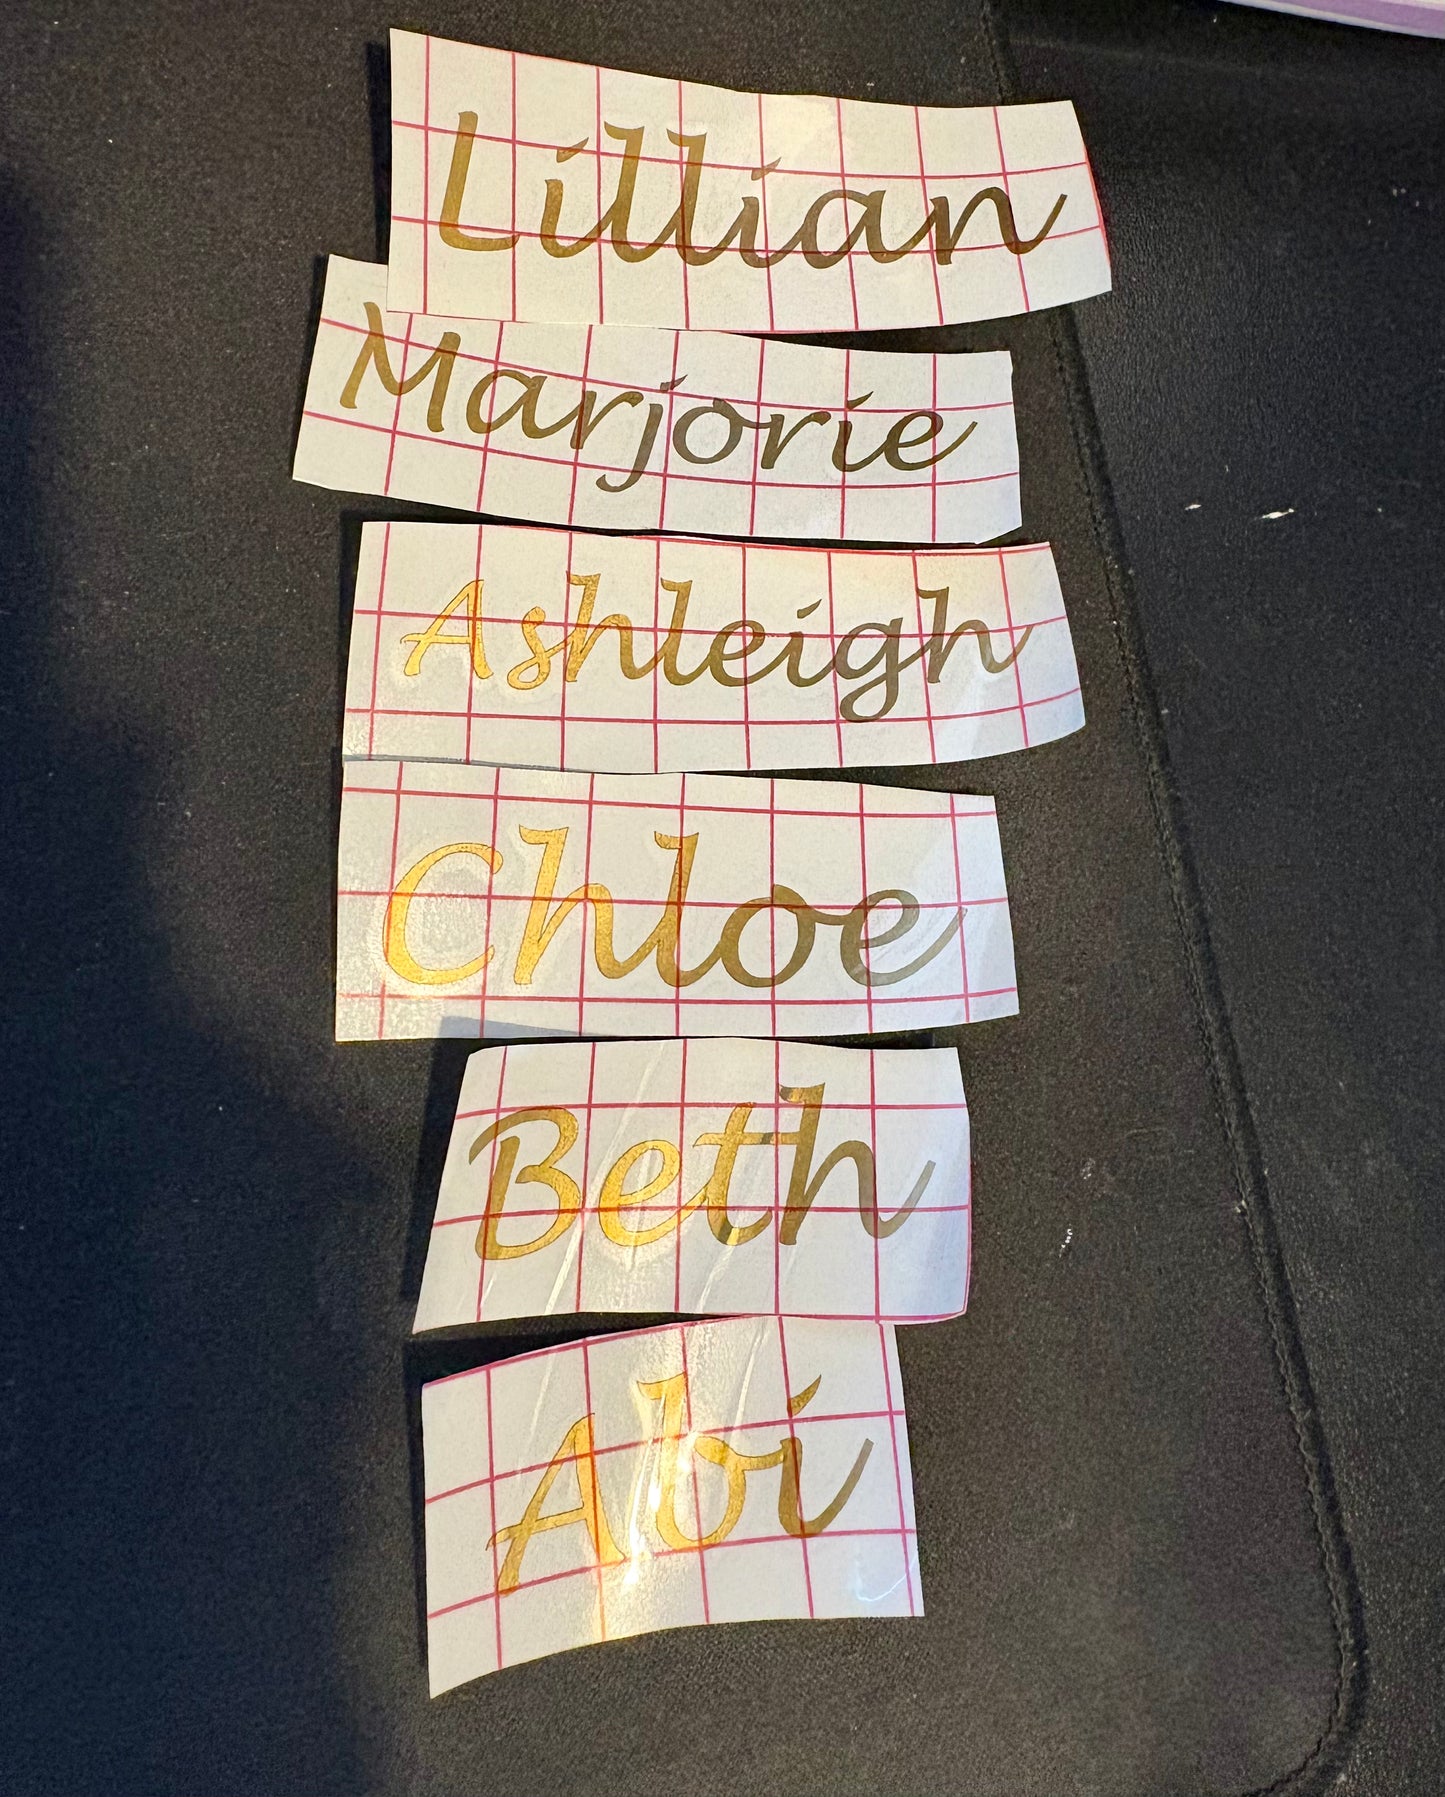 Lillian
Marjorie
Ashleigh
Chloe
Beth
Abi